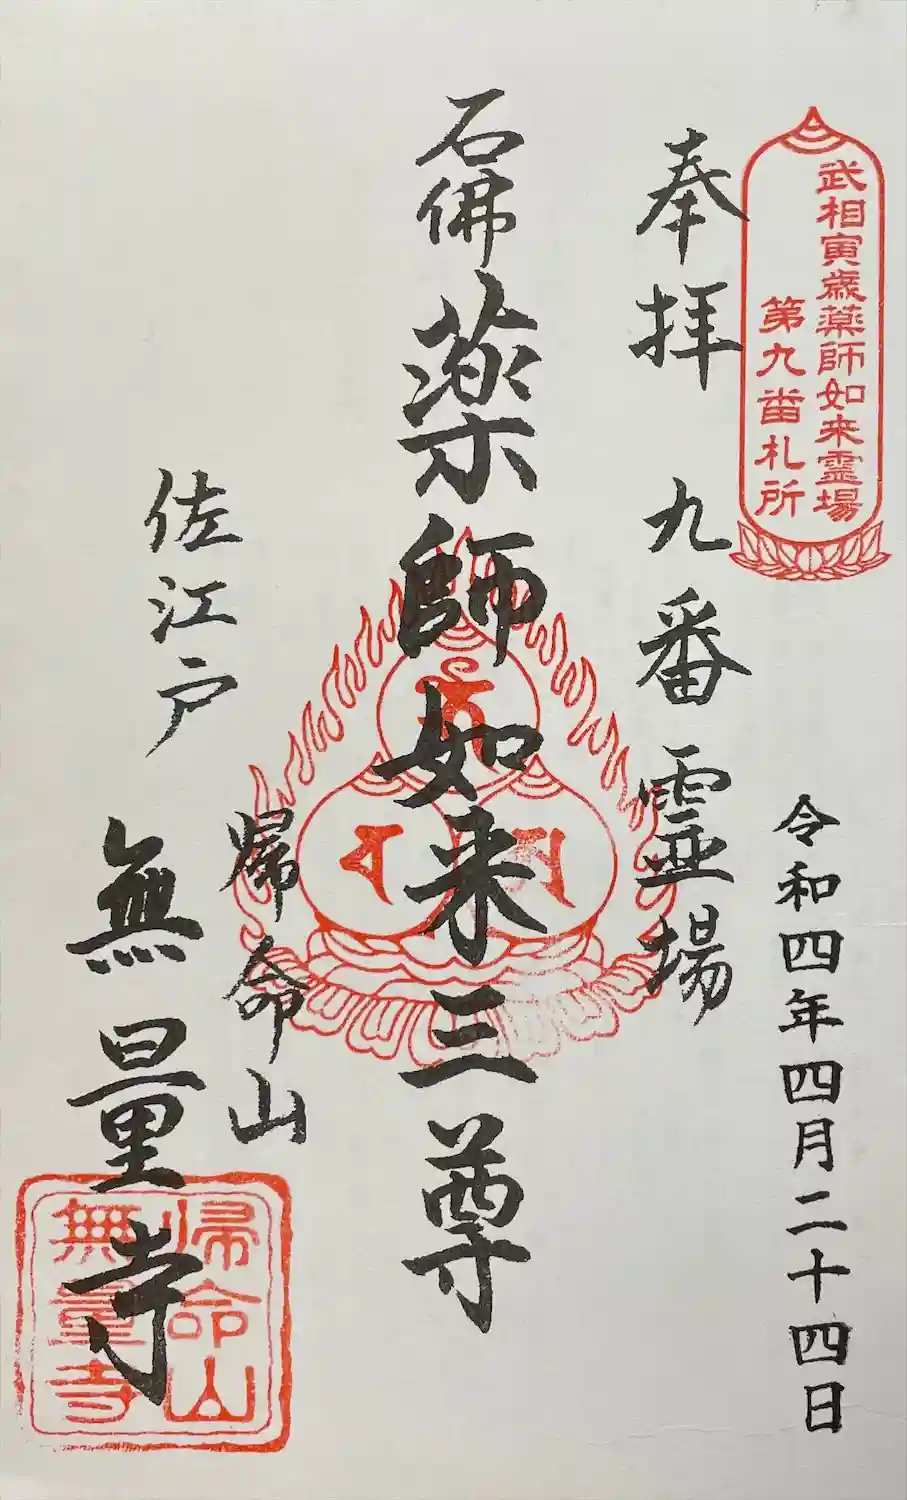 武相寅歳薬師如来霊場
第九番札所
奉拝 九番霊場
令和四年四月二十四日
石佛薬師如来三尊
佐江戸
帰命山
無量寺
帰命山
無量寺